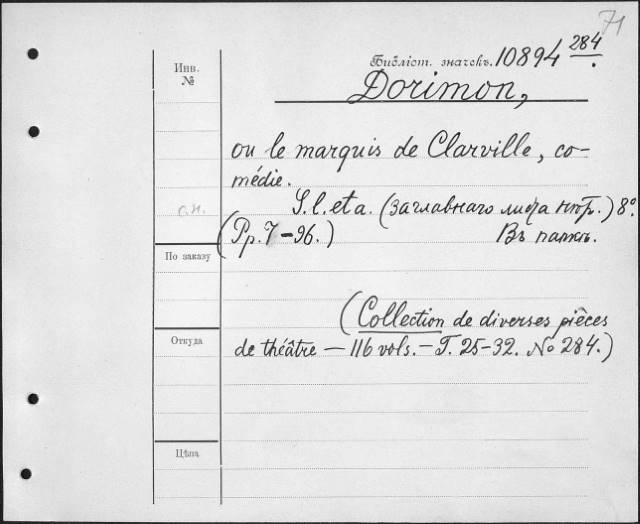 71
Инв. №
Библіот. значекъ. 10894 284
Dorimon,
ou le marquis de Clarville, co-
médie.
S. l. et a. (заглавнаго листа нѣтъ.) 8°.
(Pp. 7-96.) Въ папкѣ.
По заказу
(Collection de diverses pièces
Откуда
de théâtre — 116 vols. — T. 25-32. No 284.)
Цѣна